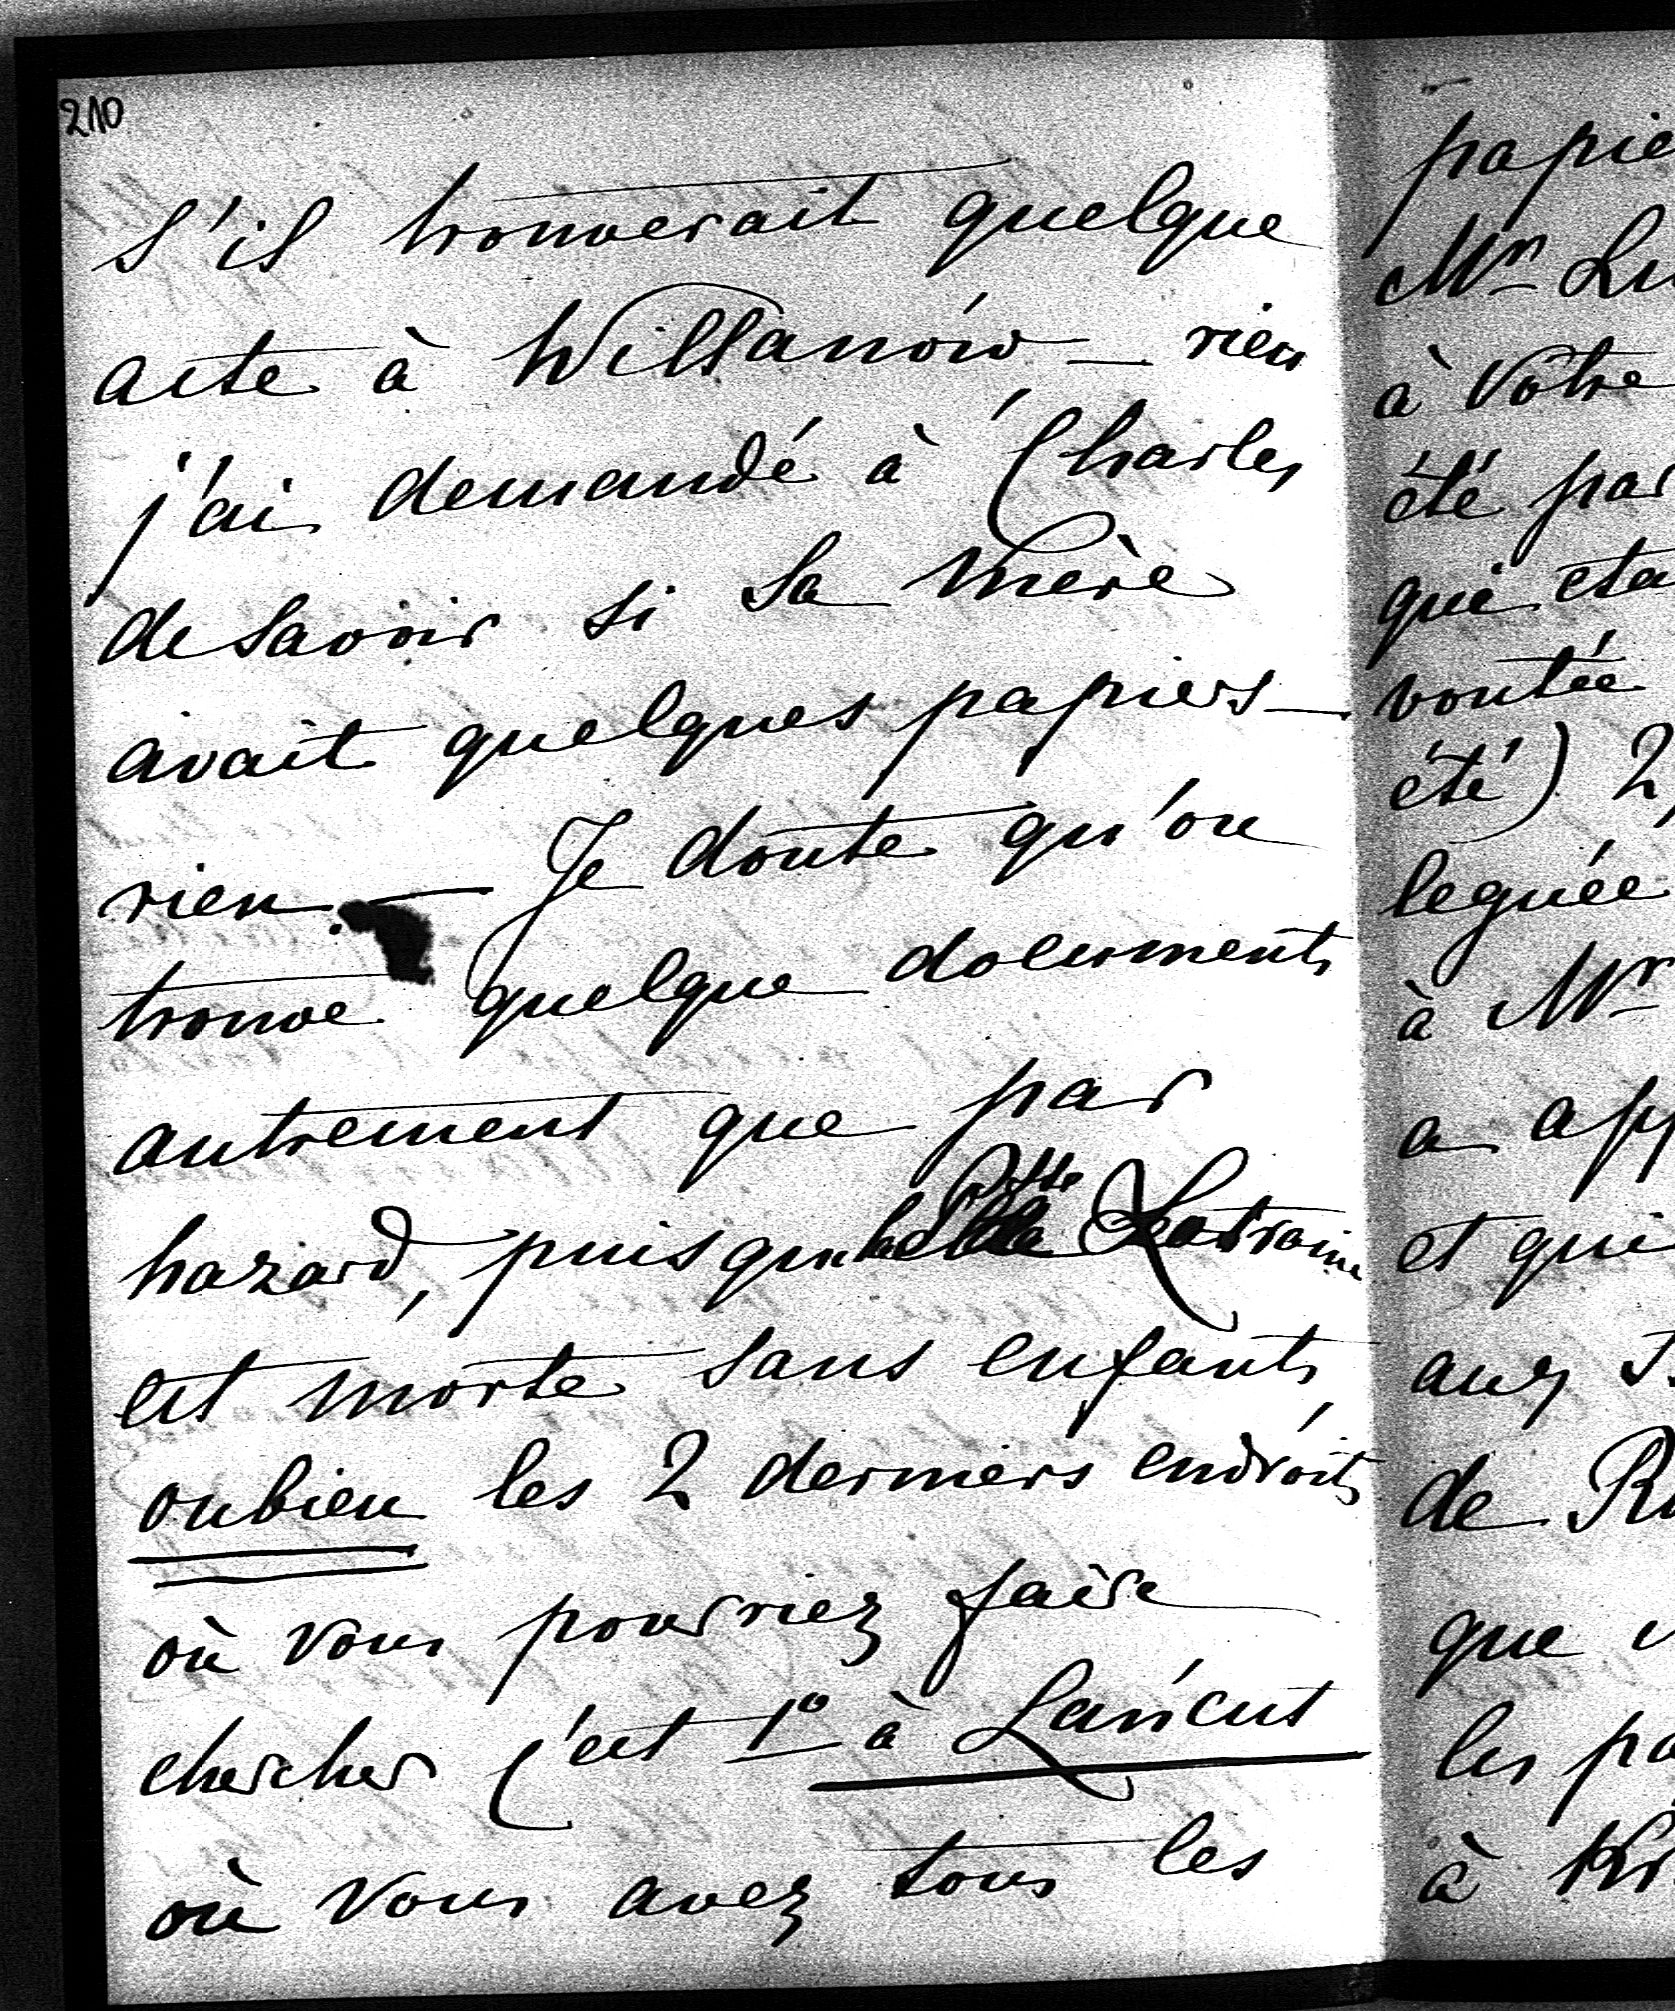 210
s'il trouverait quelque
acte à Willanów — rien
j'ai demandé à Charles
de savoir si sa mère
avait quelques papiers —
rien. — Je doute qu'on
trouve quelque documents
autrement que par
hazard, puisque la Psse Lorraine
est morte sans enfants
oubien les 2 derniers endroits
où vous pourriez faire
chercher c'est 1º à Łańcut
où vous avez tous les
papie
Mr Lu
à Votre
été par
qui éta
voutée
été) 2
leguée
à Mr
a app
et qui
aux
de R
que v
les pa
à Kr